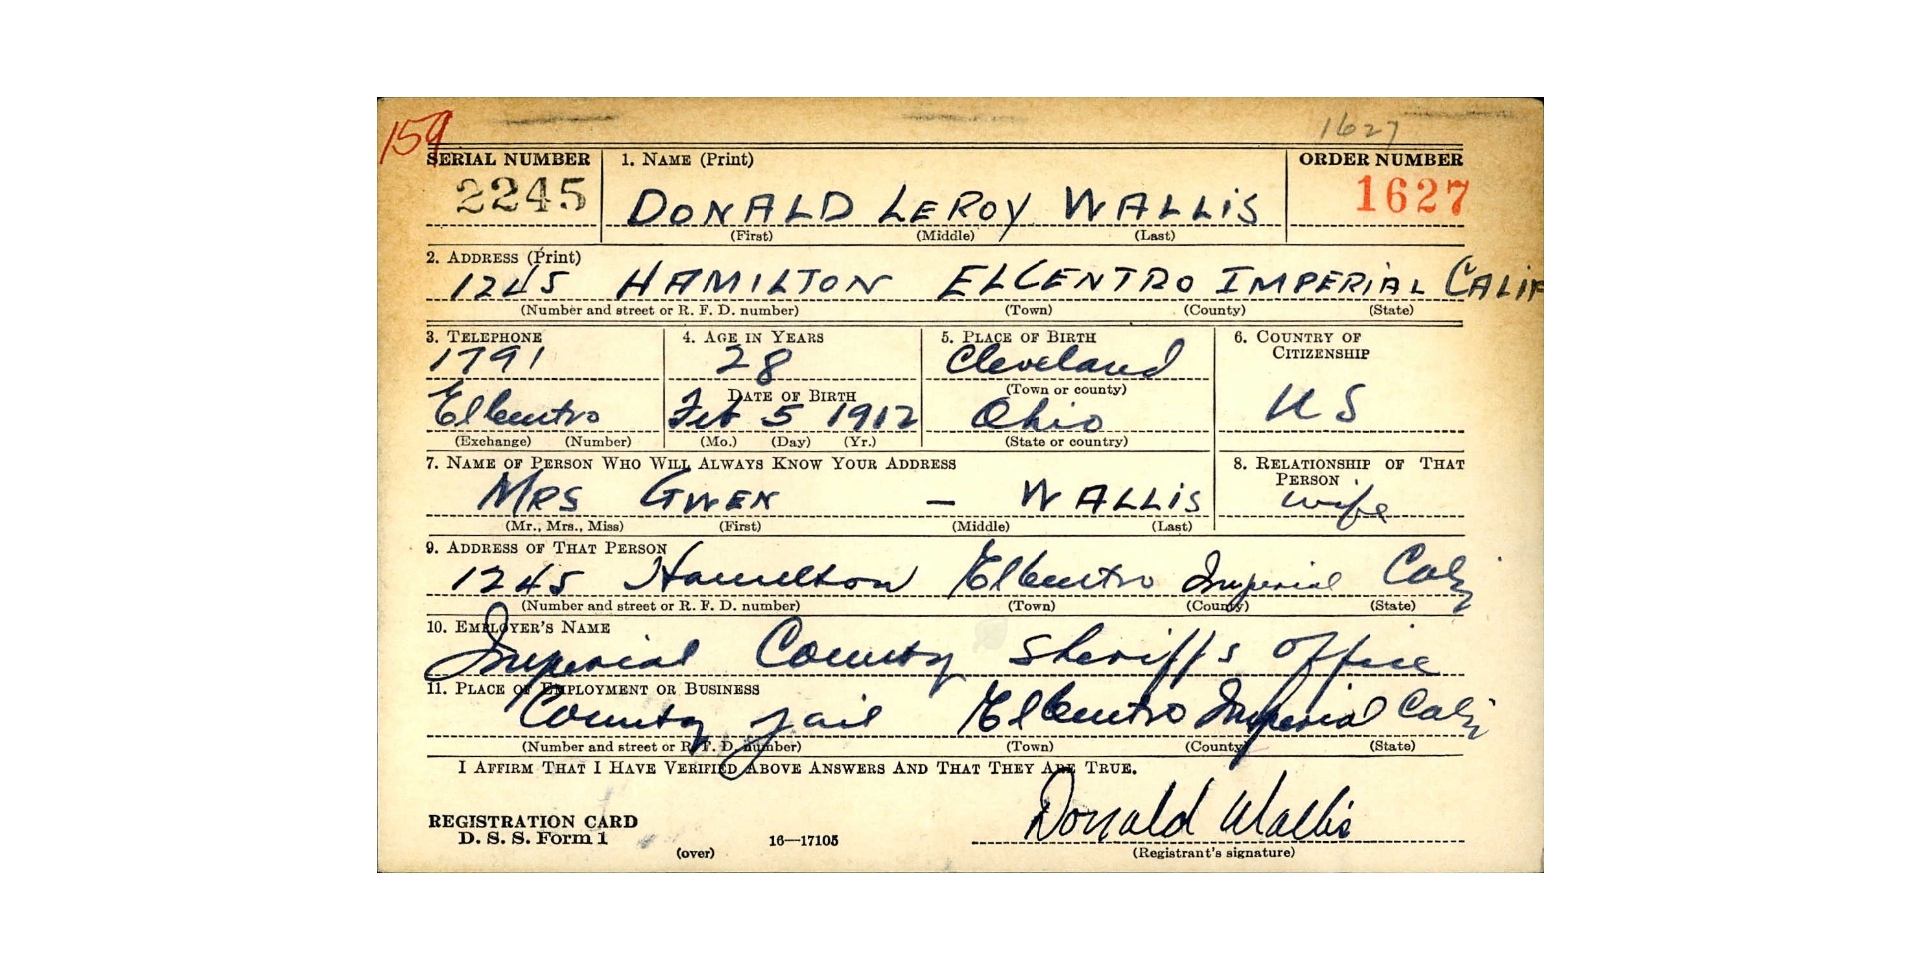 159
1627
SERIAL NUMBER 1. NAME (Print) ORDER NUMBER
2245 DONALD LEROY WALLIS 1627
(First) (Middle) (Last)
2. ADDRESS (Print)
1245 HAMILTON ELCENTRO IMPERIAL CALIF
(Number and street or R. F. D. number) (Town) (County) (State)
3. TELEPHONE 4. AGE IN YEARS 5. PLACE OF BIRTH 6. COUNTRY OF CITIZENSHIP
1791 28 Cleveland
DATE OF BIRTH (Town or county)
ElCentro Feb 5 1912 Ohio US
(Exchange) (Number) (Mo.) (Day) (Yr.) (State or country)
7. NAME OF PERSON WHO WILL ALWAYS KNOW YOUR ADDRESS 8. RELATIONSHIP OF THAT PERSON
MRS GWEN — WALLIS wife
(Mr., Mrs., Miss) (First) (Middle) (Last)
9. ADDRESS OF THAT PERSON
1245 Hamilton ElCentro Imperial Calif
(Number and street or R. F. D. number) (Town) (County) (State)
10. EMPLOYER'S NAME
Imperial County Sheriffs office
11. PLACE OF EMPLOYMENT OR BUSINESS
County jail ElCentro Imperial Calif
(Number and street or R. F. D. number) (Town) (County) (State)
I AFFIRM THAT I HAVE VERIFIED ABOVE ANSWERS AND THAT THEY ARE TRUE.
Donald Wallis
REGISTRATION CARD
D. S. S. Form 1 16—17105
(over) (Registrant's signature)